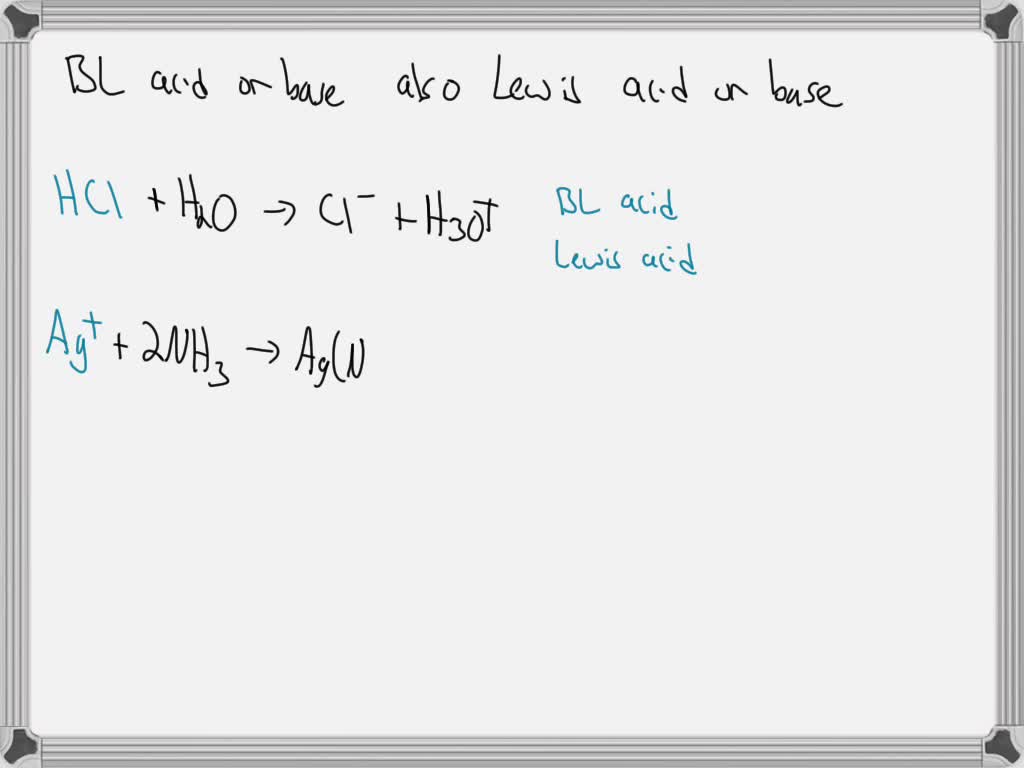 BL acid or base also Lewis acid or base
HCl + H2O → Cl⁻ + H3O⁺ BL acid
Lewis acid
Ag⁺ + 2NH3 → Ag(N